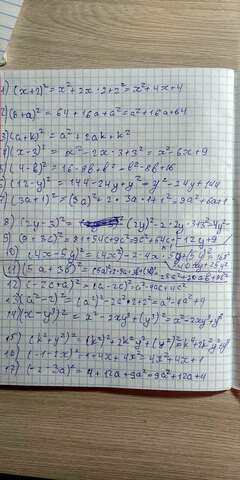 1) (x+2)² = x²+2x·2+2² = x²+4x+4
2) (8+a)² = 64+16a+a² = a²+16a+64
3) (a+k)² = a²+2ak+k²
4) (x-3)² = x²-2x·3+3² = x²-6x+9
5) (4-b)² = 16-8b+b² = b²-8b+16
6) (12-y)² = 144-24y+y² = y²-24y+144
7) (3a+1)² = (3a)²+2·3a·1+1² = 9a²+6a+1
8) (2y-3)² = (2y)²-2·2y·3+3² = 4y²-
-12y+9
9) (9+3c)² = 81+54c+9c² = 9c²+54c+
10) (4x-5y)² = (4x)²-2·4x·5y+(5y)² = 16x²
11) (5a+3b)² =
12) (-2c+a)² = (a-2c)² = a²-4ac+4c²
13) (a²-2)² = (a²)²-2a²·2+2² = a⁴-4a²+4
14) (x-y³)² = x²-2xy³+(y³)² = x²-2xy³+y⁶
15) (k²+y²)² = (k²)²+2k²y²+(y²)² = k⁴+2k²y²+y⁴
16) (-1-2x)² = 1+4x+4x² = 4x²+4x+1
17) (-2-3a)² = 4+12a+9a² = 9a²+12a+4